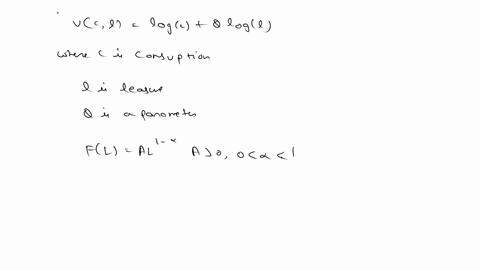 U(c, l) = log(c) + θ log(l)
where c is consuption
l is leasure
θ is a parameter
F(L) = AL^{1-α} A > 0, 0 < α < 1